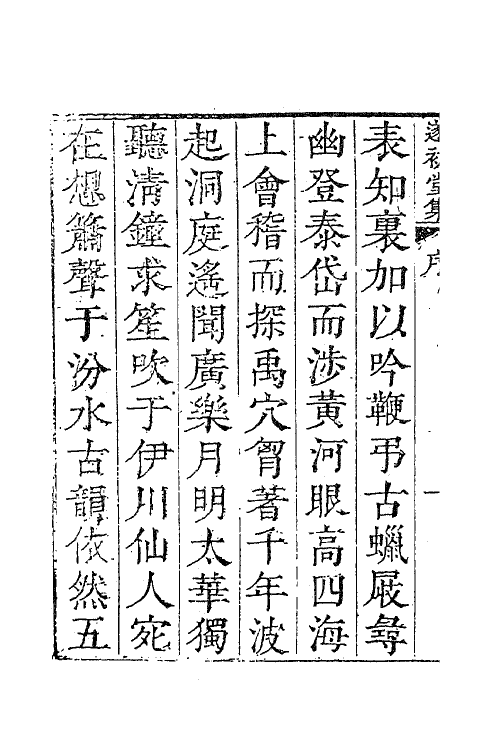 遂初堂集 序
表知裏加以吟鞭弔古蠟屐尋
幽登泰岱而涉黃河眼高四海
上會稽而探禹穴胷著千年波
起洞庭遙聞廣樂月明太華獨
聽清鐘求笙吹于伊川仙人宛
在想簫聲于汾水古韻依然五